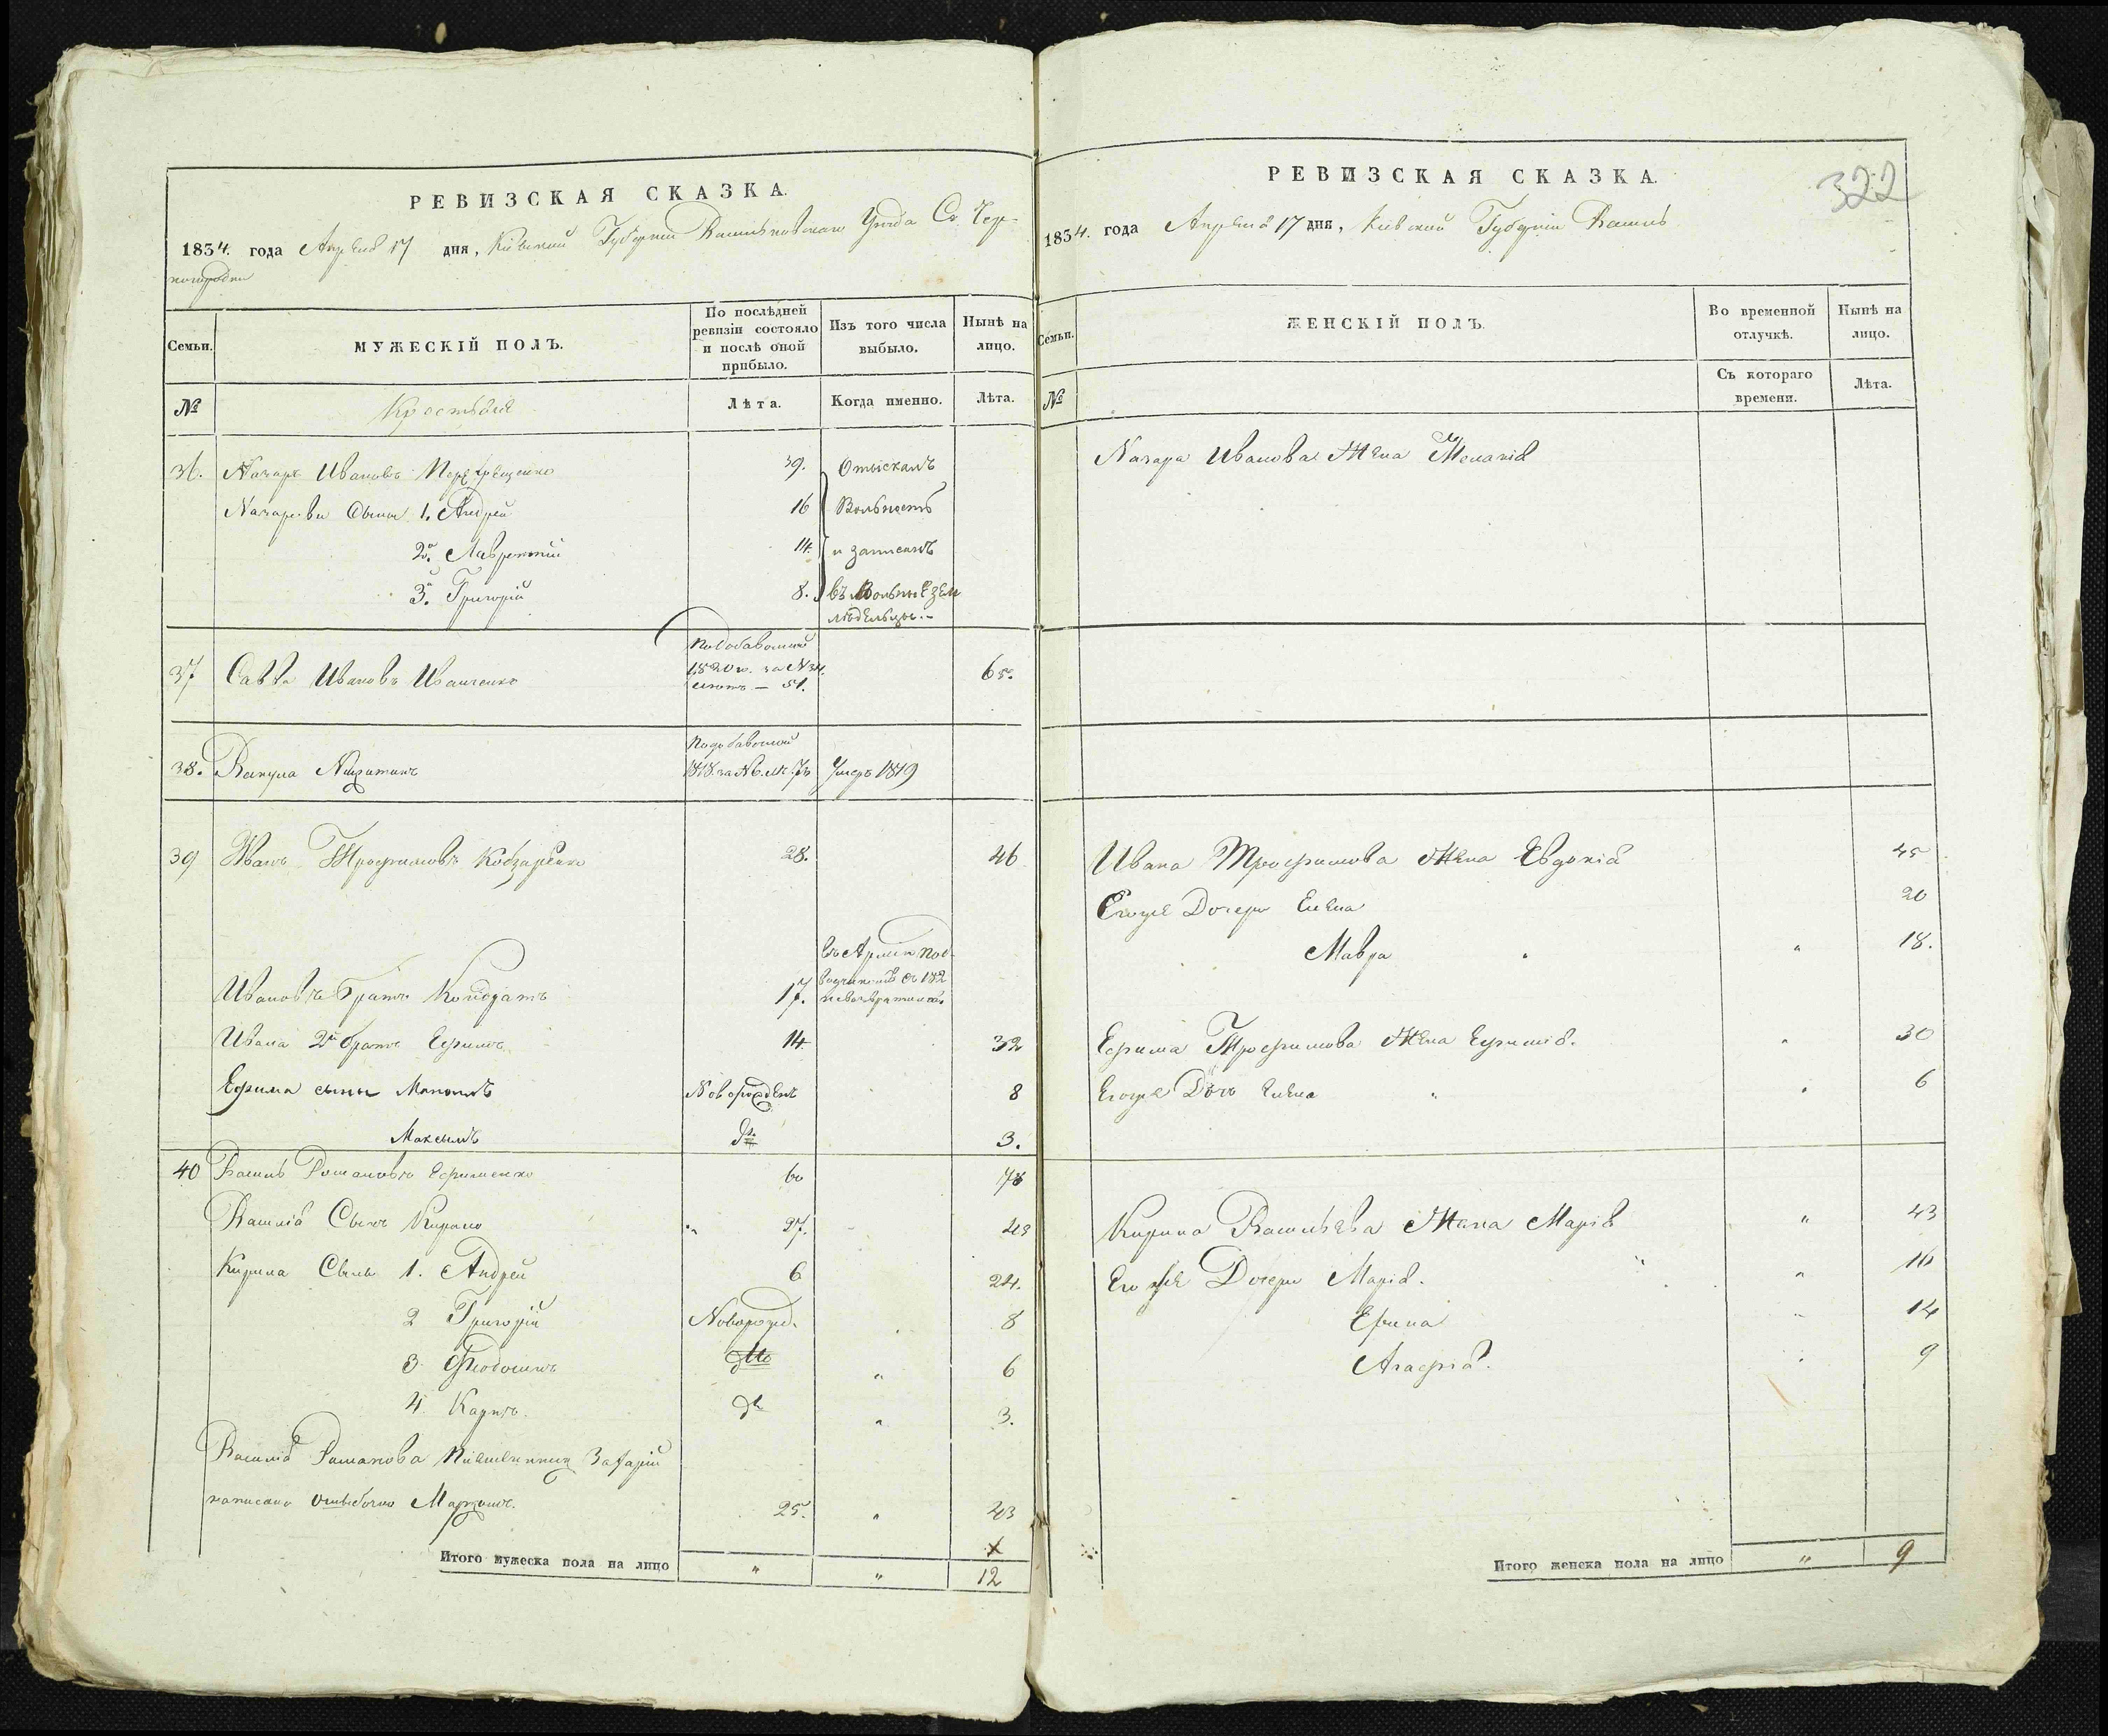 РЕВИЗСКАЯ СКАЗКА.
1834. года Апреля 17 дня, Кіевской Губерніи Васильковскаго Уезда С. Чер-
ногородки
Семьи.
МУЖЕСКІЙ ПОЛЪ.
По послѣдней ревизіи состояло и послѣ оной прибыло.
Изъ того числа выбыло.
Нынѣ на лицо.
№
Крестьяне
Лѣта.
Когда именно.
Лѣта.
36. Назаръ Ивановъ 39. Отыскалъ
Назаровы Сыны 1. Андрей 16 Вольность
2й. Лаврентій 14. и записанъ
3й. Григорій 8. въ Вольные зем
ледельцы.-
По добавочной
37 Савва Ивановъ Иванченко 1820 г. за № 34. 65.
летъ — 51.
По добавочной
38. Вакула Никитинъ 1818 за № Умеръ 1819
39 Иванъ Трофимовъ Кобзаренко 28. 46
въ Арміи под-
Ивановъ братъ Кондратъ 17. съ 182
Ивана 2й братъ Ефимъ 14. 32
Ефима сыны Мануилъ Новорожденъ 8
Максимъ до. 3.
40 Василь Романовъ Ефименко 60 78
Василія Сынъ Кирило 27. 43
Кирила Сыны 1. Андрей 6 24.
2 Григорій Новорожд. 8
3 Феодосій дто 6
4 Карпъ. до 3.
Василія Романова Племянникъ Захарій
написано ошибочно Маркомъ. 25. 43
Итого мужеска пола на лицо " " 12
322
РЕВИЗСКАЯ СКАЗКА.
1834. года Апреля 17 дня, Кіевской Губерніи Василь
Семьи.
ЖЕНСКІЙ ПОЛЪ.
Во временной отлучкѣ.
Нынѣ на лицо.
№
Съ котораго времени.
Лѣта.
Назара Иванова Жена Меланія
Ивана Трофимова Жена Евдокія 45
Егоже Дочери Елена 20
Мавра " 18.
Ефима Трофимова Жена Ефимія. " 30
Егоже Дочь Елена " 6
Кирила Васильева Жена Марія " 43
Его же Дочери Марія. " 16
Ефина 14
Агафія. 9
Итого женска пола на лицо " 9